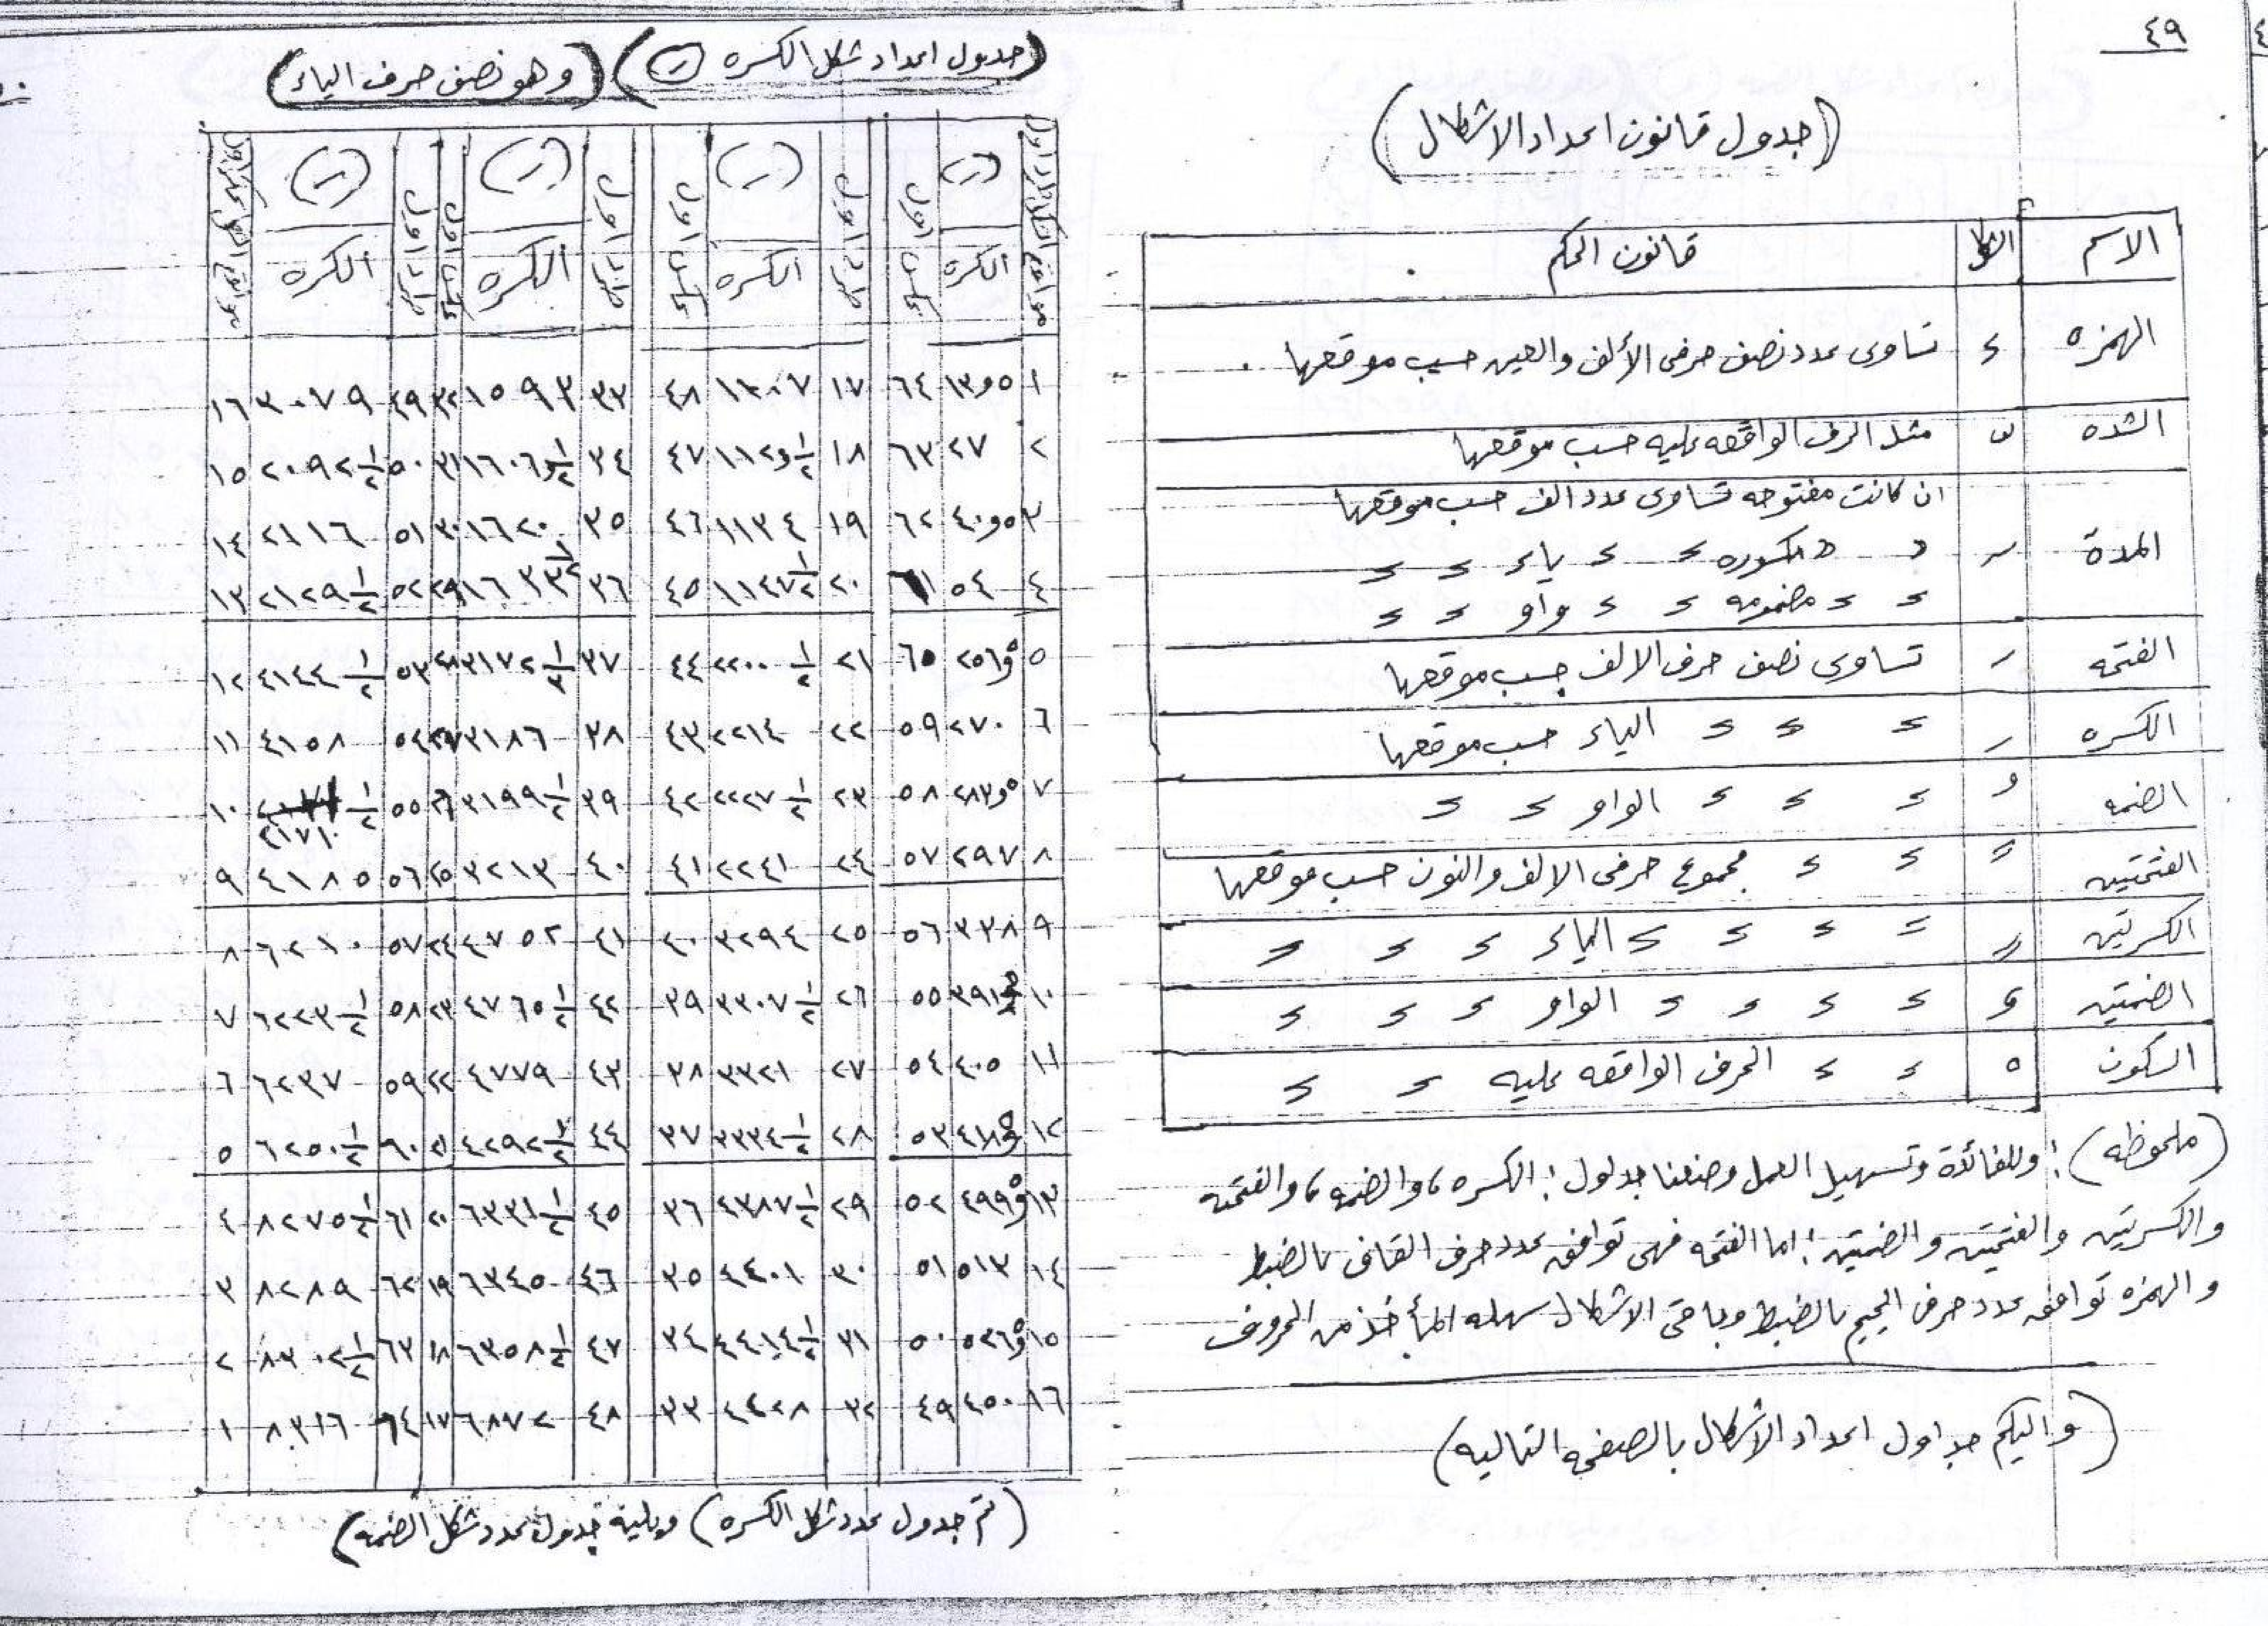 ٤٩
(جدول قانون اعداد الاشكال)
الاسم الشكل قانون الحكم
الهمزه ء تساوى عدد نصف حرفى الألف والعين حسب موقعها
الشده مثل الحرف الواقعه عليه حسب موقعها
ان كانت مفتوحه تساوى عدد الف حسب موقعها
المدة " " مكسوره " " ياء " "
" " مضمومه " " واو " "
الفتحه تساوى نصف حرف الالف حسب موقعها
الكسره " " " الياء حسب موقعها
الضمه " " " الواو " "
الفتحتين " " " مجموع حرفى الالف والنون حسب موقعها
الكسرتين " " " " الياء " " " "
الضمتين " " " " الواو " " "
السكون ه " " الحرف الواقعه عليه " "
(ملحوظه): وللفائدة وتسهيل العمل وضعنا جدول: الكسره، والضمه، والفتحه
والكسرتين والفتحتين والضمتين: اما الفتحه فهى توافق عدد حرف القاف بالضبط
والهمزه توافق عدد حرف الجيم بالضبط وباقى الاشكال سهله المأخذ من الحروف
(واليكم جداول اعداد الاشكال بالصفحه التاليه)
(جدول اعداد شكل الكسره) (وهو نصف حرف الياء)
الكسره عكس اول طرد اول الكسره عكس اول طرد اول الكسره عكس اول طرد اول الكسره
١ ١٣و٥ ٦٤ ١٧ ١١٠٧ ٤٨ ٣٣ ١٥٩٣ ٣٢ ٤٩ ٣٠٧٩ ١٦
٢ ٢٧ ٦٣ ١٨ ١١٢و١/٢ ٤٧ ٣٤ ١٦٠٦و١/٢ ٣١ ٥٠ ٢٠٩٢ ١/٢ ١٥
٣ ٤٠و٥ ٦٢ ١٩ ١١٣٤ ٤٦ ٣٥ ١٦٢٠ ٣٠ ٥١ ٢١١٦ ١٤
٤ ٥٤ ٦١ ٢٠ ١١٤٧ ١/٢ ٤٥ ٣٦ ١٦٣٣ ١/٢ ٢٩ ٥٢ ٢١٢٩ ١/٢ ١٣
٥ ٢٥٦و٥ ٦٥ ٢١ ٢٢٠٠ ١/٢ ٤٤ ٣٧ ٣١٧٢ ١/٢ ٢٨ ٥٣ ٤١٤٤ ١/٢ ١٢
٦ ٢٧٠ ٥٩ ٢٢ ٢٢١٤ ٤٣ ٣٨ ٣١٨٦ ٢٧ ٥٤ ٤١٥٨ ١١
٧ ٢٨٣و٥ ٥٨ ٢٣ ٢٢٢٧ ١/٢ ٤٢ ٣٩ ٣١٩٩ ١/٢ ٢٦ ٥٥ ٤١٧١ ١/٢ ١٠
٨ ٢٩٧ ٥٧ ٢٤ ٢٢٤١ ٤١ ٤٠ ٣٢١٣ ٢٥ ٥٦ ٤١٨٥ ٩
٩ ٣٣٨ ٥٦ ٢٥ ٣٢٩٤ ٤٠ ٤١ ٤٧٥٢ ٢٤ ٥٧ ٦٢١٠ ٨
١٠ ٣٩١و٥ ٥٥ ٢٦ ٣٣٠٧ ١/٢ ٣٩ ٤٢ ٤٧٦٥ ١/٢ ٢٣ ٥٨ ٦٢٢٣ ١/٢ ٧
١١ ٤٠٥ ٥٤ ٢٧ ٣٣٢١ ٣٨ ٤٣ ٤٧٧٩ ٢٢ ٥٩ ٦٢٣٧ ٦
١٢ ٤١٨و٥ ٥٣ ٢٨ ٣٣٣٤ ١/٢ ٣٧ ٤٤ ٤٢٩٢ ١/٢ ٢١ ٦٠ ٦٢٥٠ ١/٢ ٥
١٣ ٤٩٩و٥ ٥٢ ٢٩ ٤٣٨٧ ١/٢ ٣٦ ٤٥ ٦٣٣١ ١/٢ ٢٠ ٦١ ٨٢٧٥ ١/٢ ٤
١٤ ٥١٣ ٥١ ٣٠ ٤٤٠١ ٣٥ ٤٦ ٦٣٤٥ ١٩ ٦٢ ٨٢٨٩ ٣
١٥ ٥٢٦و٥ ٥٠ ٣١ ٤٤١٤ ١/٢ ٣٤ ٤٧ ٦٣٥٨ ١/٢ ١٨ ٦٣ ٨٣٠٢ ١/٢ ٢
١٦ ٤٥٠ ٤٩ ٣٢ ٤٤٢٨ ٣٣ ٤٨ ٦٨٧٢ ١٧ ٦٤ ٨٣١٦ ١
(تم جدول عدد شكل الكسره) ويليه جدول عدد شكل الضمه)